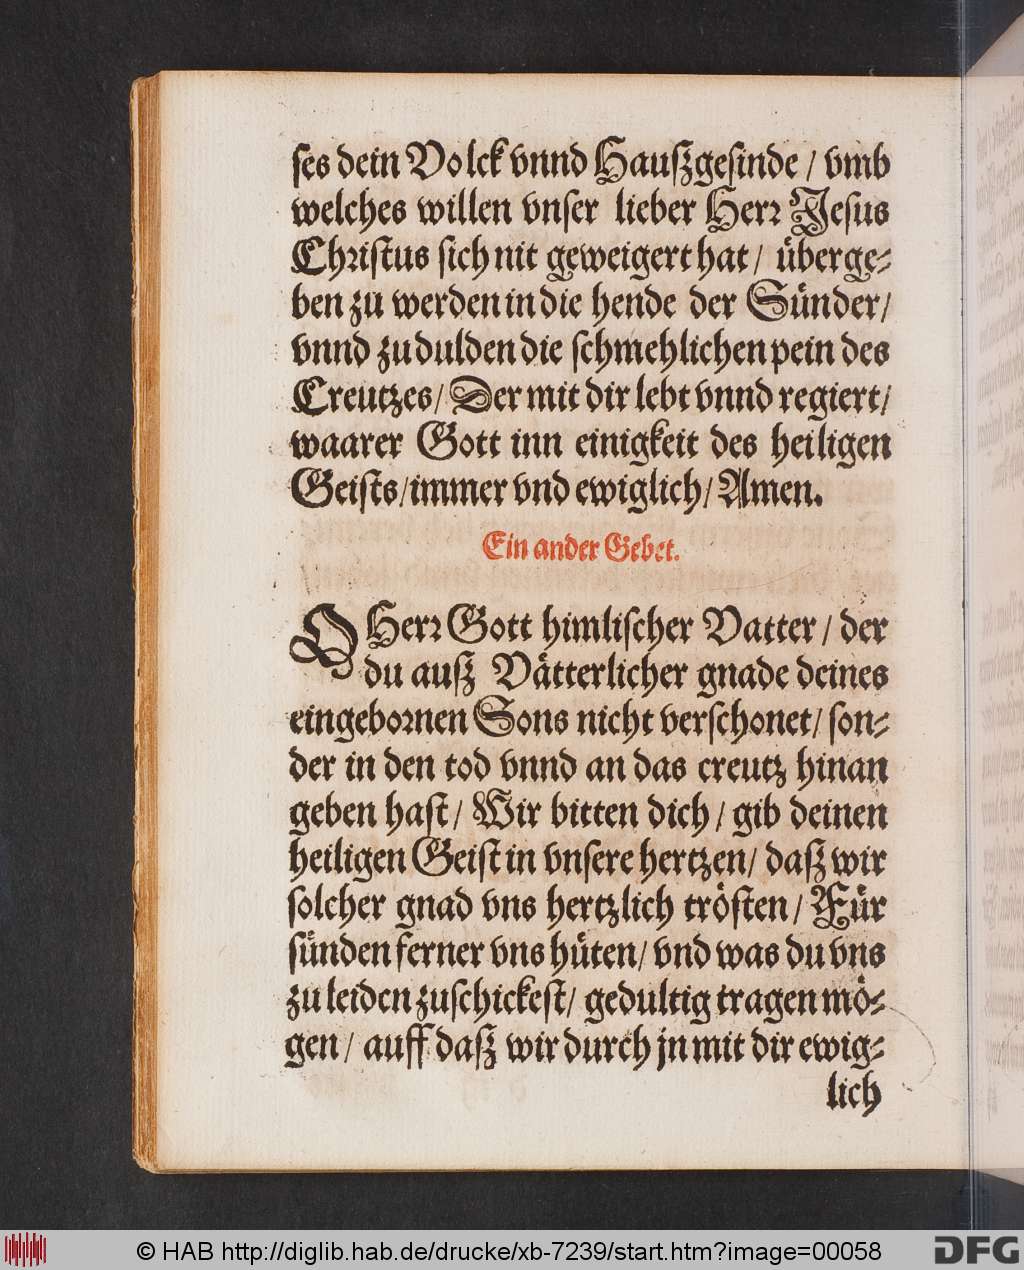 ses dein Volck vnnd Haußgesinde / vmb
welches willen vnser lieber Herr Jesus
Christus sich nit geweigert hat / überge⸗
ben zu werden in die hende der Sünder /
vnnd zu dulden die schmehlichen pein des
Creutzes / Der mit dir lebt vnnd regiert /
waarer Gott inn einigkeit des heiligen
Geists / immer vnd ewiglich / Amen.
Ein ander Gebet.
O Herr Gott himlischer Vatter / der
du auß Vätterlicher gnade deines
eingebornen Sons nicht verschonet / son⸗
der in den tod vnnd an das creutz hinan
geben hast / Wir bitten dich / gib deinen
heiligen Geist in vnsere hertzen / daß wir
solcher gnad vns hertzlich trösten / Für
sünden ferner vns hüten / vnd was du vns
zu leiden zuschickest / gedultig tragen mö⸗
gen / auff daß wir durch jn mit dir ewig⸗
lich
© HAB http://diglib.hab.de/drucke/xb-7239/start.htm?image=00058
DFG